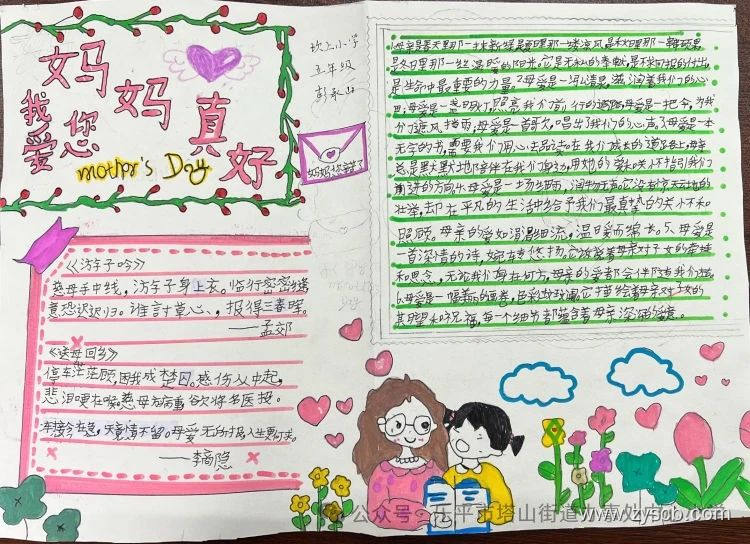 妈妈
我爱您
妈妈真好
mother's Day
坎上小学
五年级
妈妈你辛苦了
《游子吟》
慈母手中线，游子身上衣。临行密密缝
意恐迟迟归。谁言寸草心，报得三春晖。
——孟郊
《送母回乡》
停车茫茫顾，困我成楚囚。感伤从中起，
悲泪哽在喉。慈母方病重，欲将名医投。
车接今在急，天竟情不留。母爱无所报，人生更何求。
——李商隐
1.母亲是春天里那一抹新绿是夏里那一缕凉风是秋里那一
是冬日里那一丝温暖的阳光。它是无私的奉献，是不求回报的付出，
是生命中最重要的力量。2.母爱是一泓清泉，滋润着我们的心
田；母爱是一盏明灯，照亮我们前行的道路；母爱是一把伞，为我
们遮风挡雨；母爱是一首歌，唱出了我们的心声。3.母爱是一本
无字的书，需要我们用心去品读。在我们成长的道路上，母亲
总是默默地陪伴在我们身边，用她的爱和关怀指引我们
前进的方向。4.母爱是一场细雨，润物无声。它没有惊天动地的
壮举，却在平凡的生活中给予我们最真挚的关怀和
照顾。母亲的爱如涓涓细流，温暖而绵长。5.母爱是
一首深情的诗，婉转悠扬。它诉说着母亲对子女的牵挂
和思念，无论我们身在何方，母亲的爱都会伴随我们左右。
6.母爱是一幅美丽的画卷，色彩斑斓。它描绘着母亲对子女的
期望和祝福，每一个细节都蕴含着母亲深深的爱意。
公众号·乐平市塔山街道
www.zysob.com